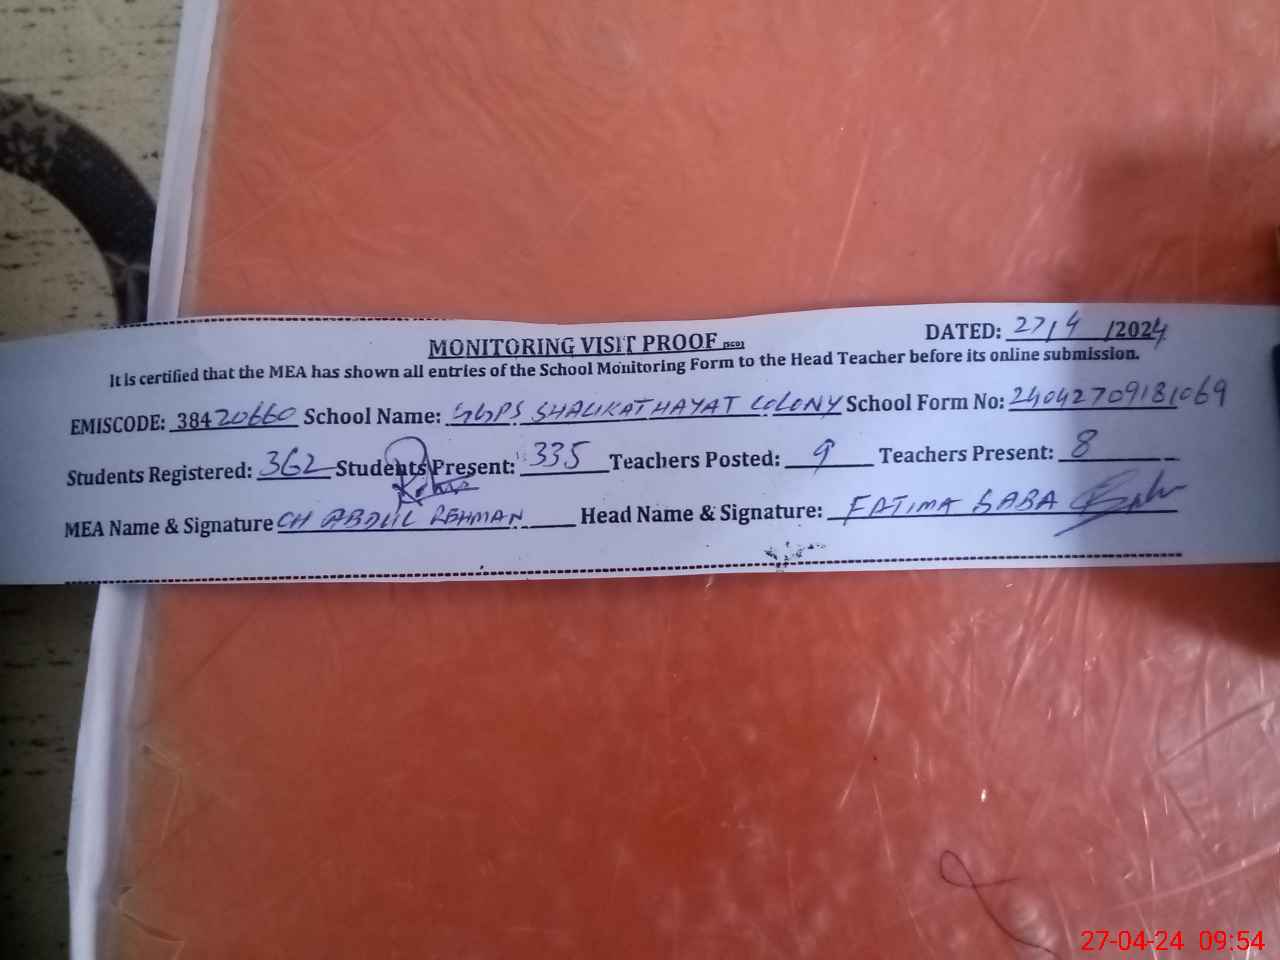 MONITORING VISIT PROOF (SCD)
DATED: 27/4/2024
It is certified that the MEA has shown all entries of the School Monitoring Form to the Head Teacher before its online submission.
EMISCODE: 38420660 School Name: GGPS SHAUKAT HAYAT COLONY School Form No: 24042709181069
Students Registered: 362 Students Present: 335 Teachers Posted: 9 Teachers Present: 8
MEA Name & Signature CH ABDUL REHMAN Head Name & Signature: FATIMA SABA
27-04-24 09:54